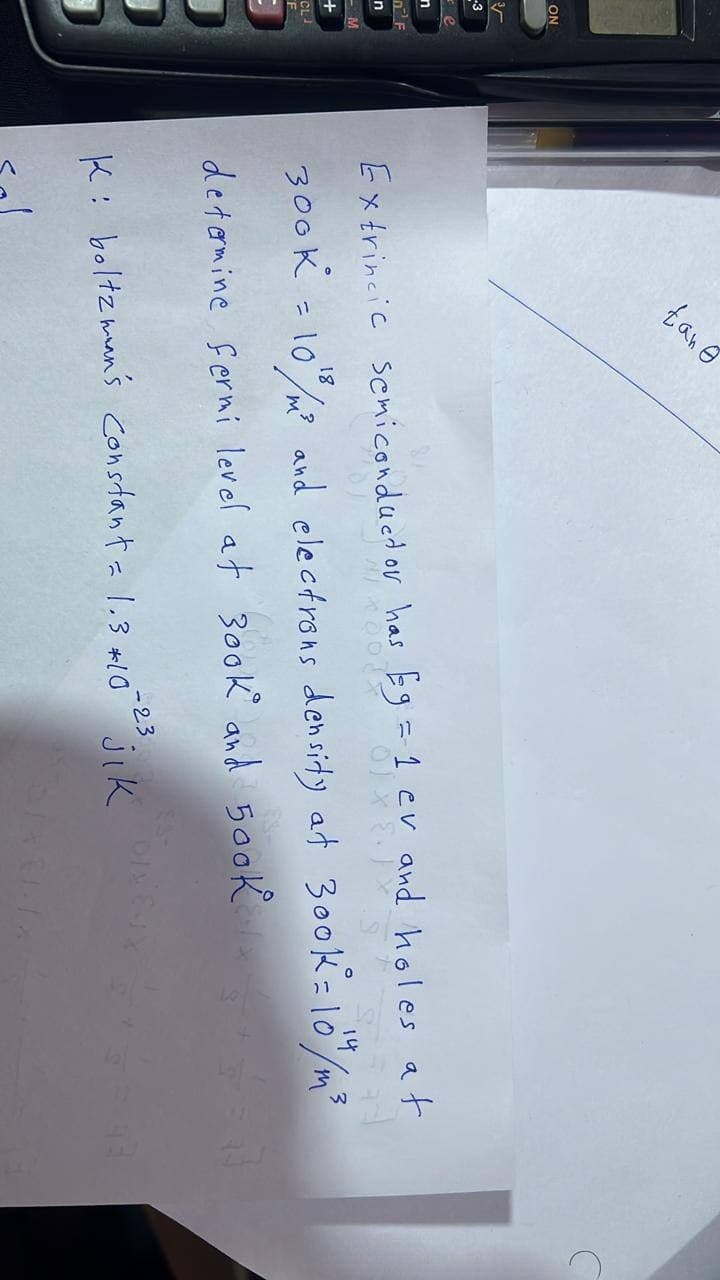 Extrincic semiconductor has Eg = 1 ev and holes at
300K° = 10¹⁸/m³ and electrons density at 300K° = 10¹⁴/m³
determine fermi level at 300K° and 500K°
K: boltzmann's constant = 1.3*10⁻²³ j/k
Sol
tan θ
ON